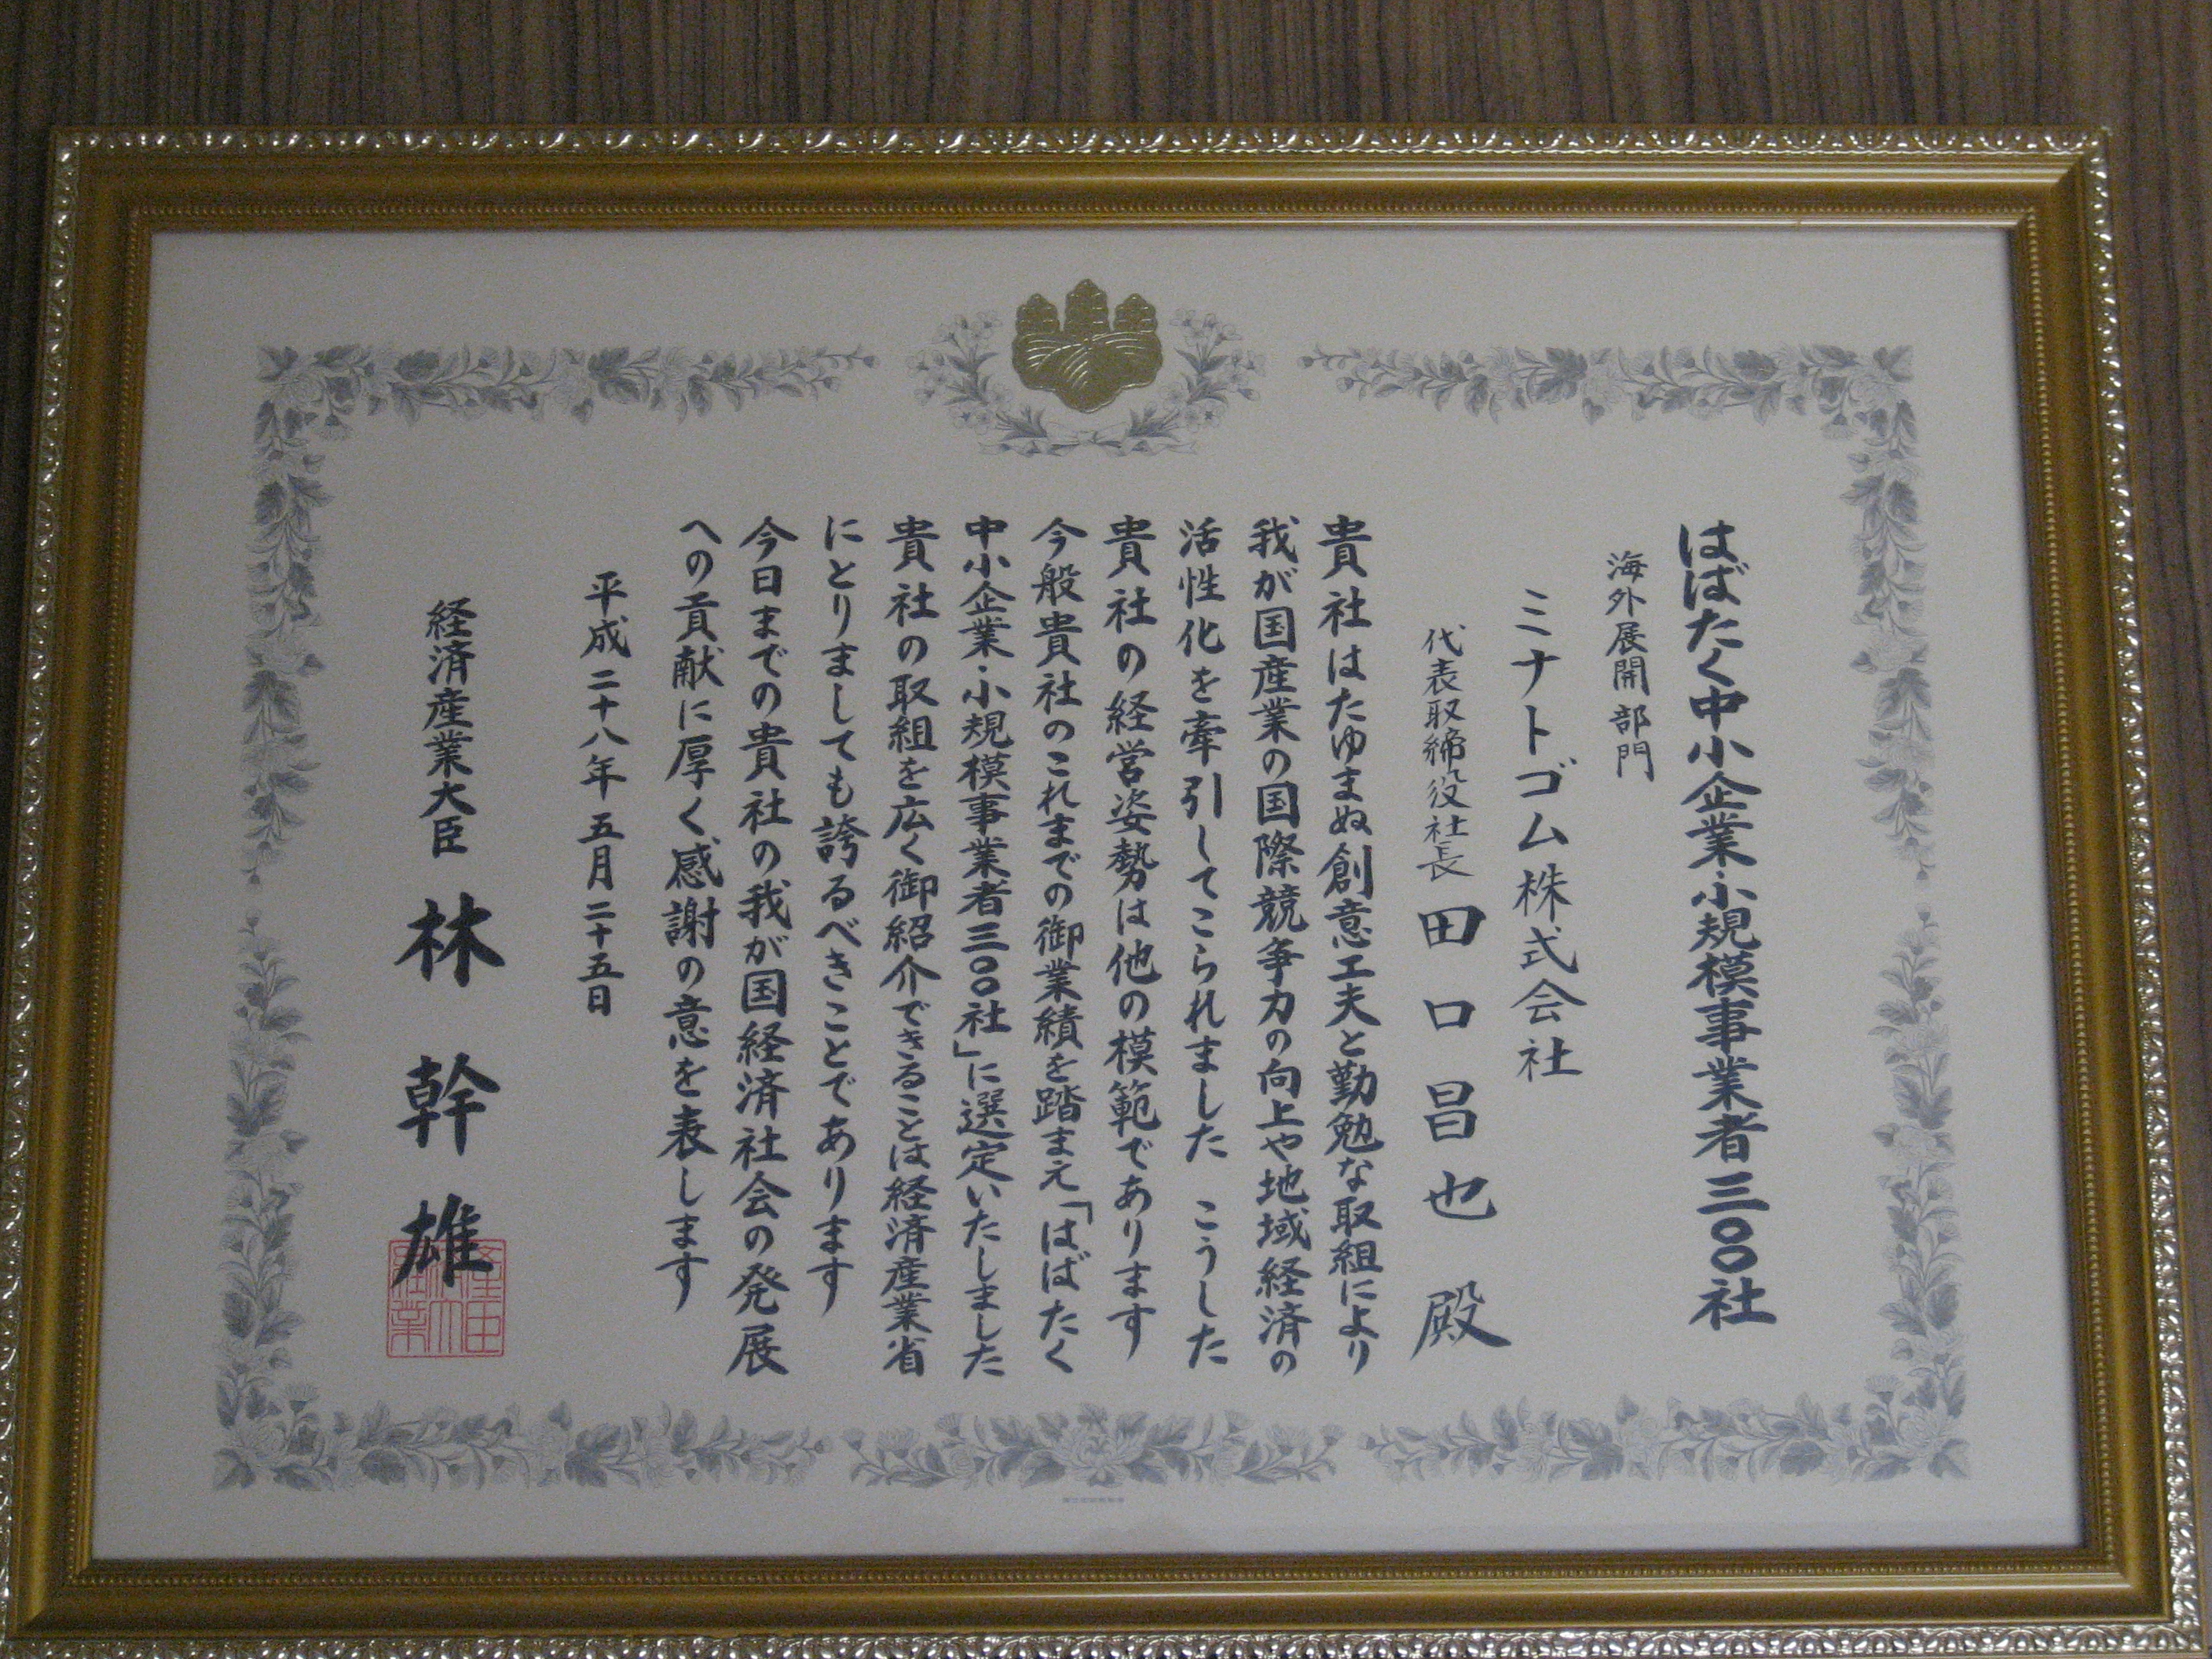 はばたく中小企業・小規模事業者三〇〇社
海外展開部門
ミナトゴム株式会社
代表取締役社長 田口昌也 殿
貴社はたゆまぬ創意工夫と勤勉な取組により
我が国産業の国際競争力の向上や地域経済の
活性化を牽引してこられました こうした
貴社の経営姿勢は他の模範であります
今般貴社のこれまでの御業績を踏まえ「はばたく
中小企業・小規模事業者三〇〇社」に選定いたしました
貴社の取組を広く御紹介できることは経済産業省
にとりましても誇るべきことであります
今日までの貴社の我が国経済社会の発展
への貢献に厚く感謝の意を表します
平成二十八年五月二十五日
経済産業大臣 林幹雄